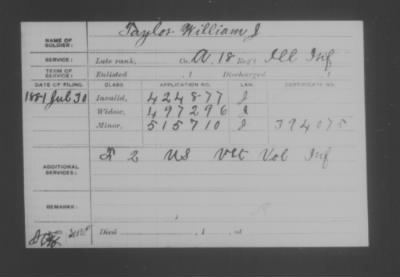 NAME OF SOLDIER: Taylor William J
SERVICE: Late rank, Co. A, 18 Reg't Ill Inf
TERM OF SERVICE: Enlisted , 1 Discharged , 1
DATE OF FILING. CLASS. APPLICATION NO. LAW. CERTIFICATE NO.
1881 Jul 30 Invalid, 424877 J
Widow, 497296 J
Minor, 515710 J 394075
ADDITIONAL SERVICES: F 2 US Vet Vol Inf
REMARKS:
Died , 1 , at